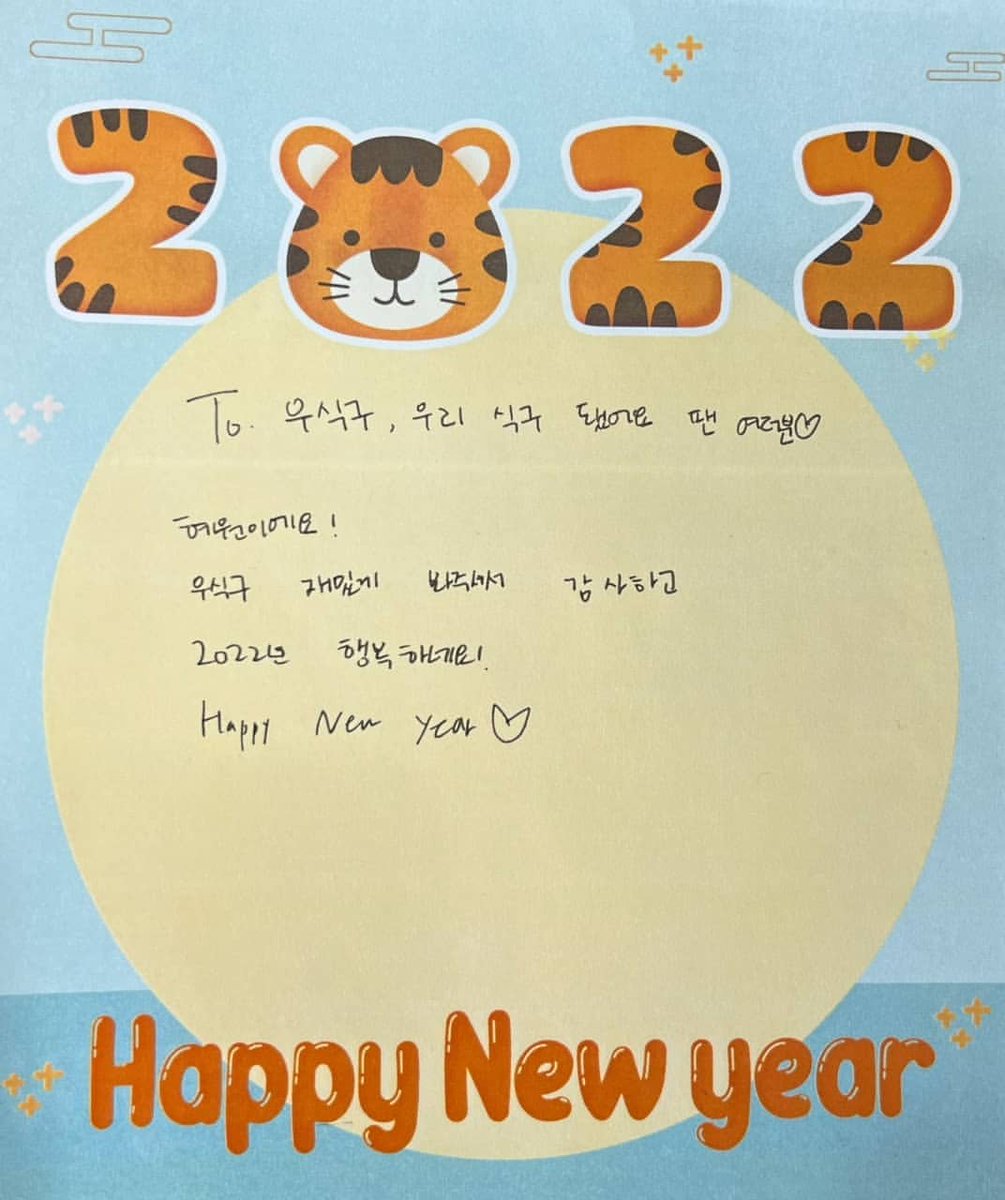 2022
To. 우식구, 우리 식구 됐어요 팬 여러분♡
혜원이에요!
우식구 재밌게 봐주셔서 감사하고
2022년 행복하세요!
Happy New year ♡
Happy New year